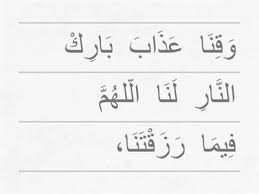 وَقِنَا عَذَابَ بَارِكْ
النَّارِ لَنَا اللّٰهُمَّ
فِيمَا رَزَقْتَنَا،